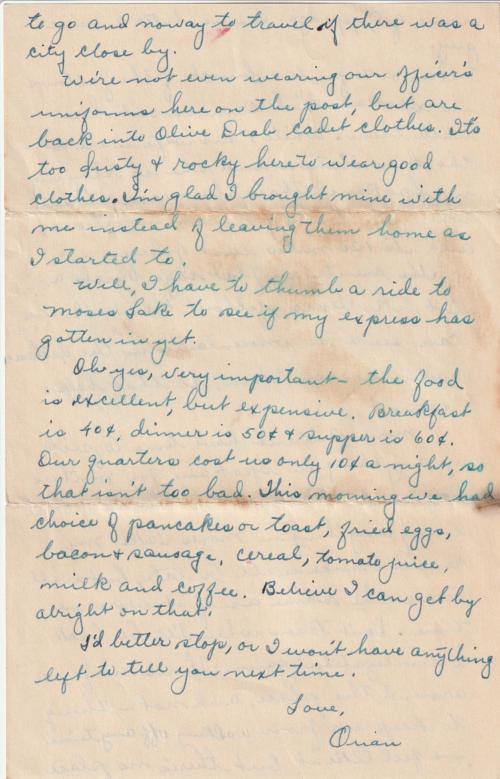 to go and noway to travel if there was a
city close by.
We're not even wearing our officer's
uniforms here on the post, but are
back into Olive Drab cadet clothes. It's
too dusty & rocky here to wear good
clothes. I'm glad I brought mine with
me instead of leaving them home as
I started to.
Well, I have to thumb a ride to
Moses Lake to see if my express has
gotten in yet.
Oh yes, very important - the food
is excellent, but expensive. Breakfast
is 40¢, dinner is 50¢ & supper is 60¢.
Our quarters cost us only 10¢ a night, so
that isn't too bad. This morning we had
choice of pancakes or toast, fried eggs,
bacon & sausage, cereal, tomato juice,
milk and coffee. Believe I can get by
alright on that.
I'd better stop, or I won't have anything
left to tell you next time.
Love,